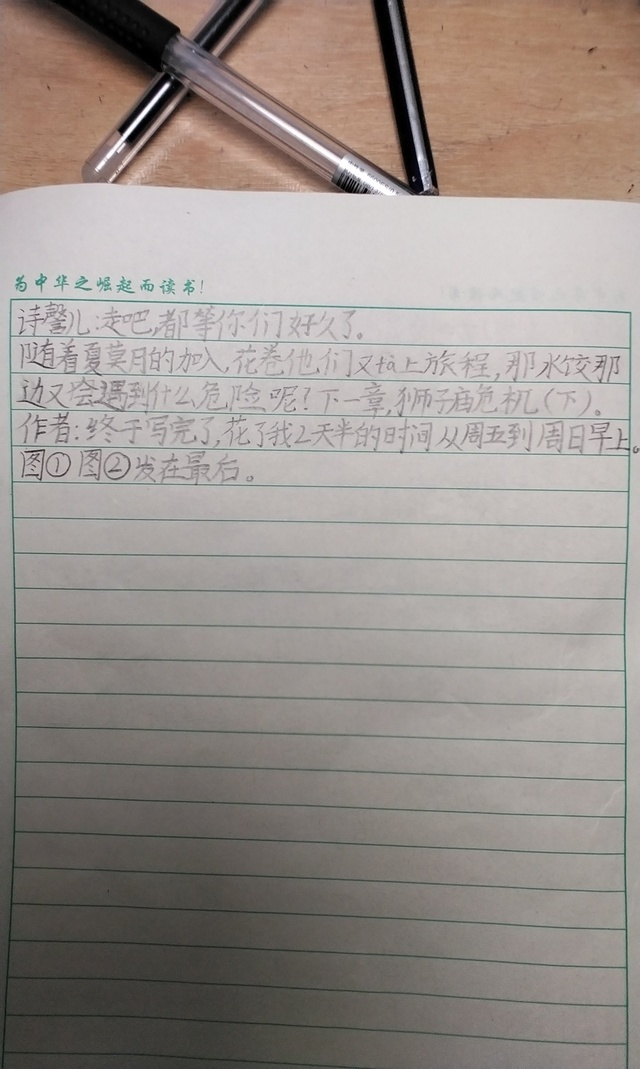 为中华之崛起而读书！
诗馨儿：走吧，都等你们好久了。
随着夏莫月的加入，花卷他们又tà上旅程，那水饺那
边又会遇到什么危险呢？下一章，狮子庙危机（下）。
作者：终于写完了，花了我2天半的时间从周五到周日早上。
图① 图②发在最后。